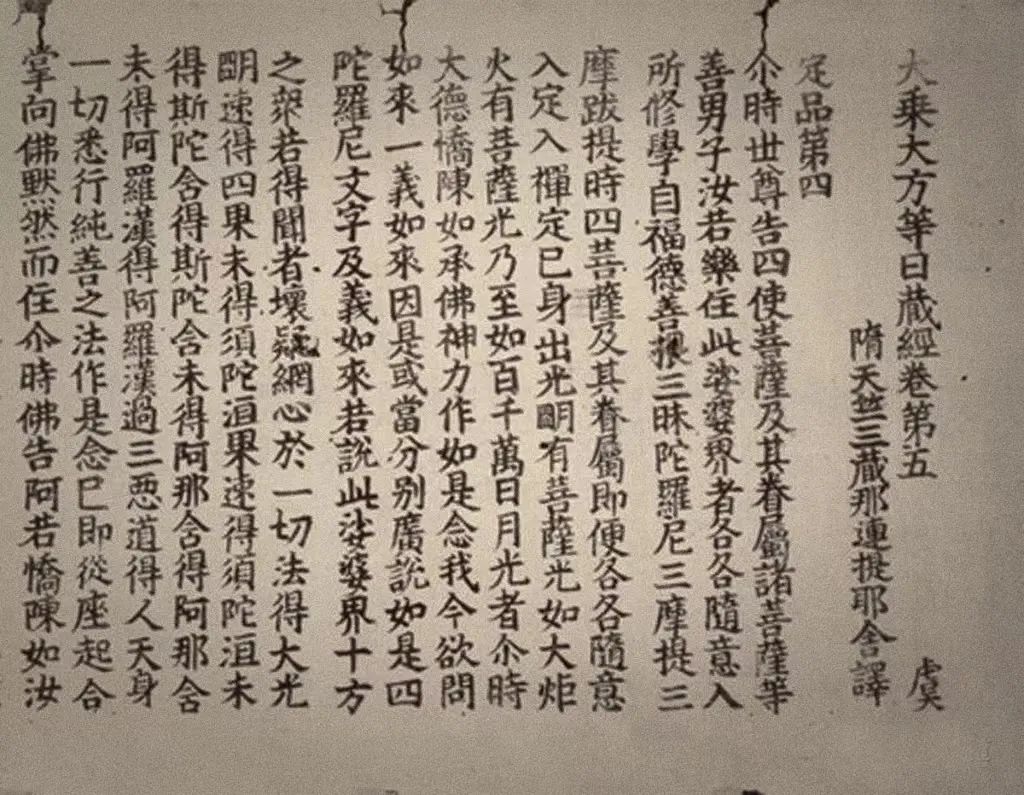 大乘大方等日藏經卷第五 虞
隋天竺三藏那連提耶舍譯
定品第四
尒時世尊告四使菩薩及其眷屬諸菩薩等
善男子汝若樂住此娑婆界者各各隨意入
所修學自福德善根三昧陀羅尼三摩提三
摩跋提時四菩薩及其眷屬即便各各隨意
入定入禪定已身出光明有菩薩光如大炬
火有菩薩光乃至如百千萬日月光者尒時
大德憍陳如承佛神力作如是念我今欲問
如來一義如來因是或當分別廣說如是四
陀羅尼文字及義如來若說此娑婆界十方
之衆若得聞者壞疑網心於一切法得大光
明速得四果未得須陀洹果速得須陀洹未
得斯陀含得斯陀含未得阿那含得阿那含
未得阿羅漢得阿羅漢過三惡道得人天身
一切悉行純善之法作是念已即從座起合
掌向佛默然而住尒時佛告阿若憍陳如汝